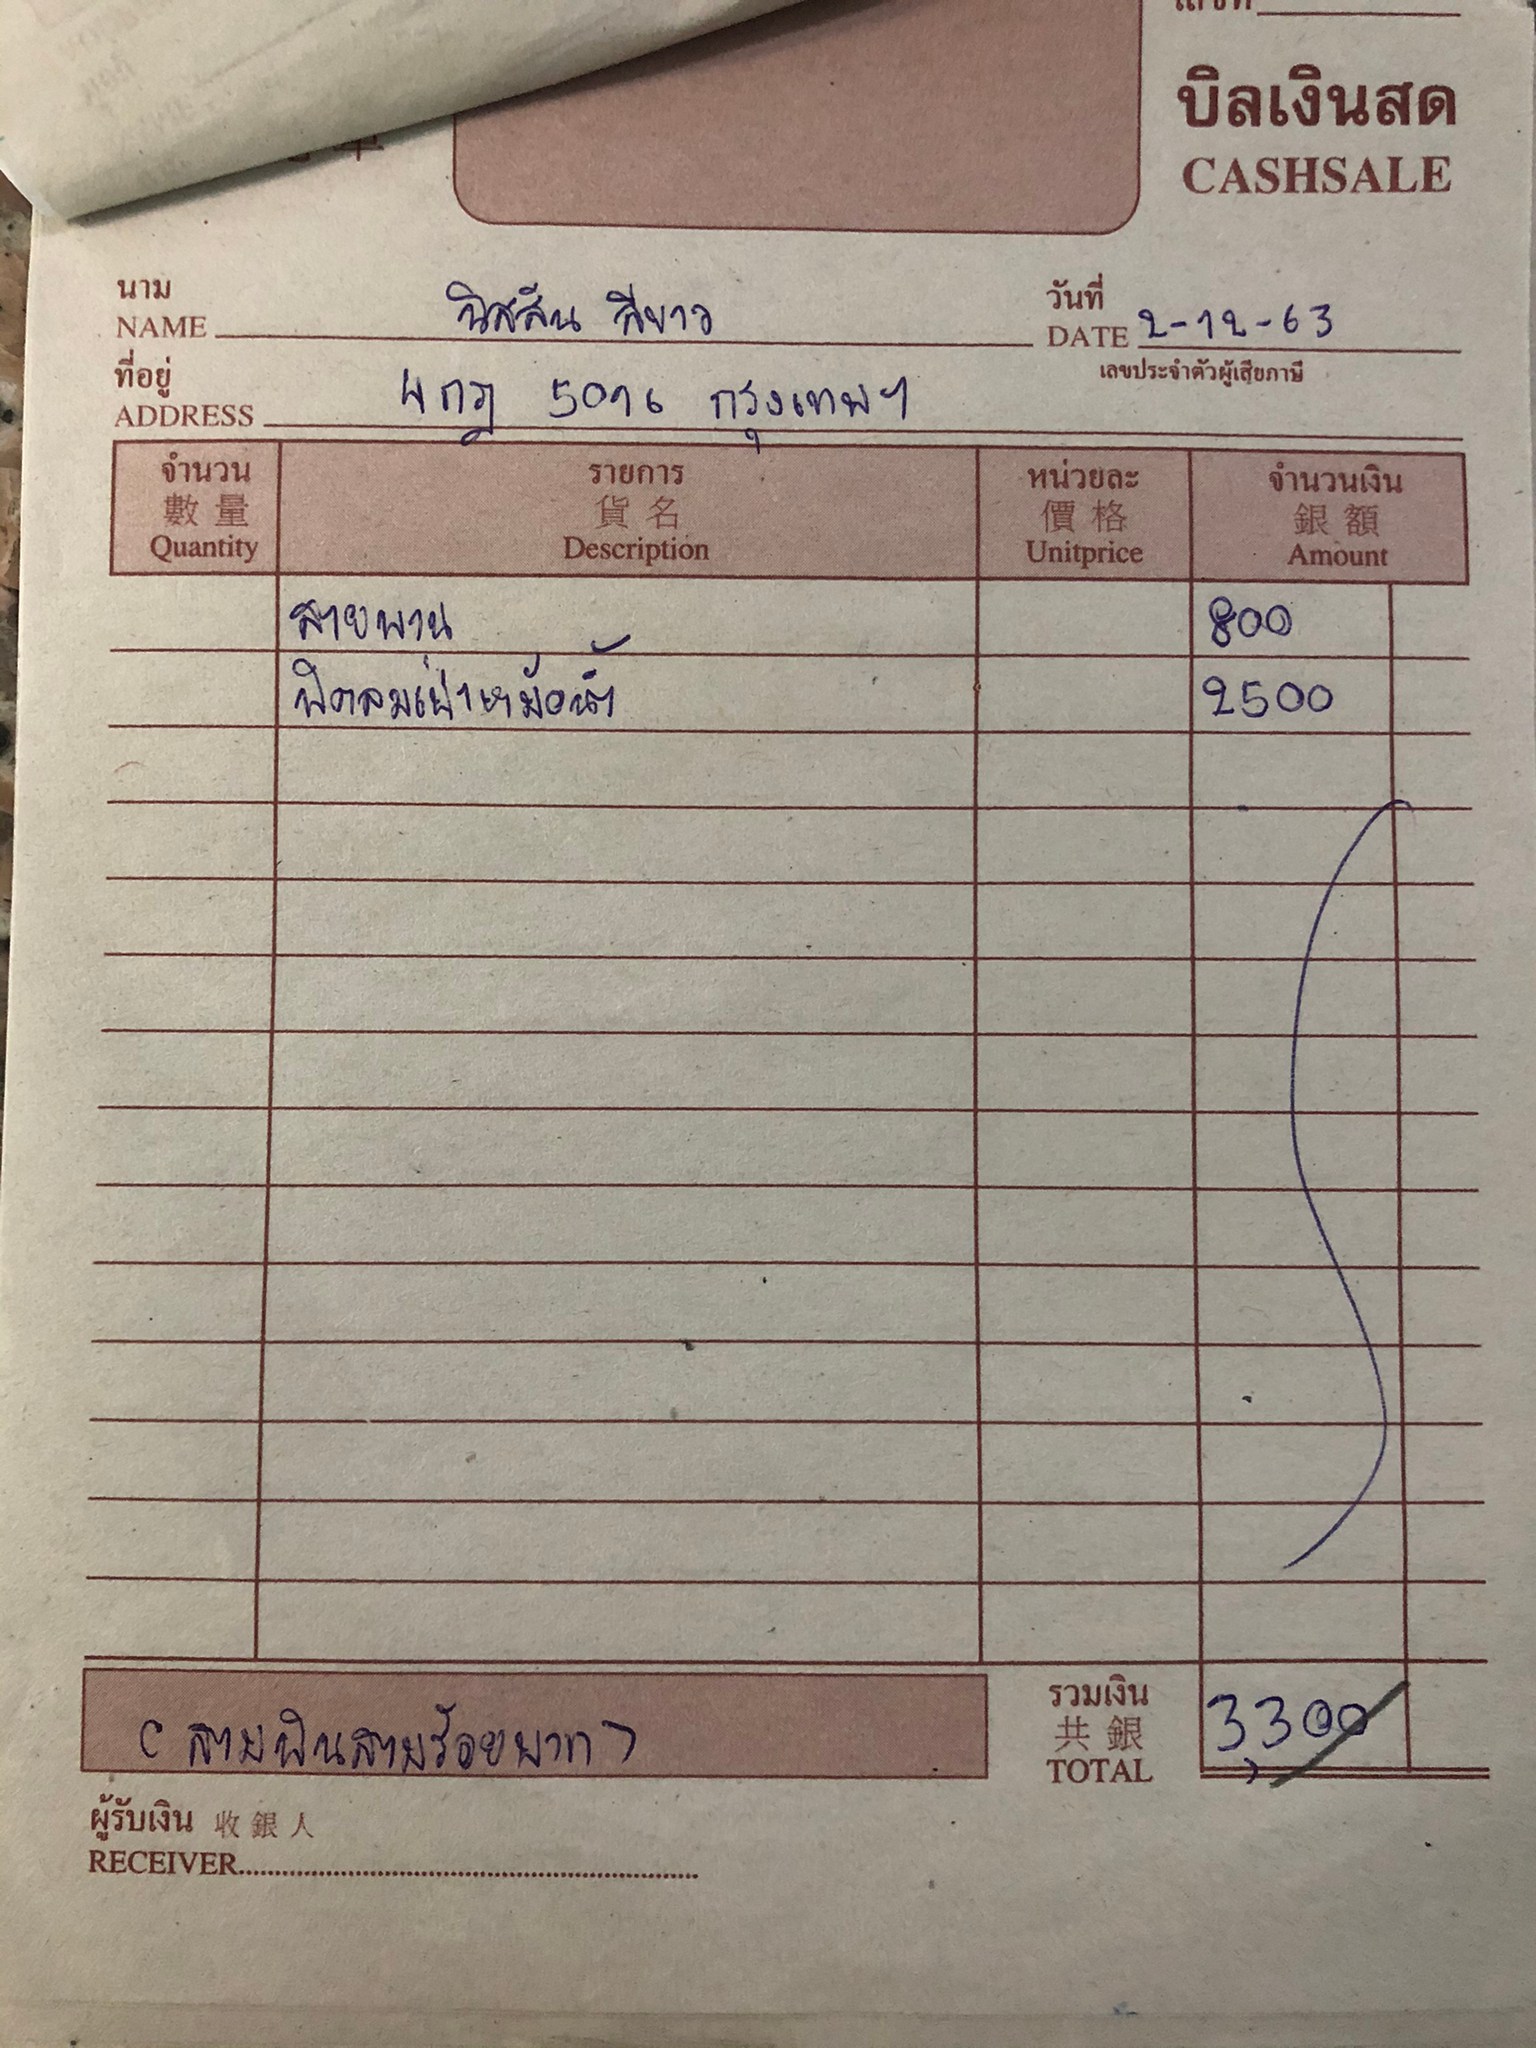 เลขที่
บิลเงินสด
CASHSALE
นาม
NAME นิสสัน สีขาว
วันที่
DATE 2-12-63
เลขประจำตัวผู้เสียภาษี
ที่อยู่
ADDRESS 4กฎ 5016 กรุงเทพฯ
จำนวน รายการ หน่วยละ จำนวนเงิน
數量 貨名 價格 銀額
Quantity Description Unitprice Amount
สายพาน 800
พัดลมเป่าหม้อน้ำ 2500
(สามพันสามร้อยบาท)
รวมเงิน
共銀
TOTAL 3,300
ผู้รับเงิน 收銀人
RECEIVER